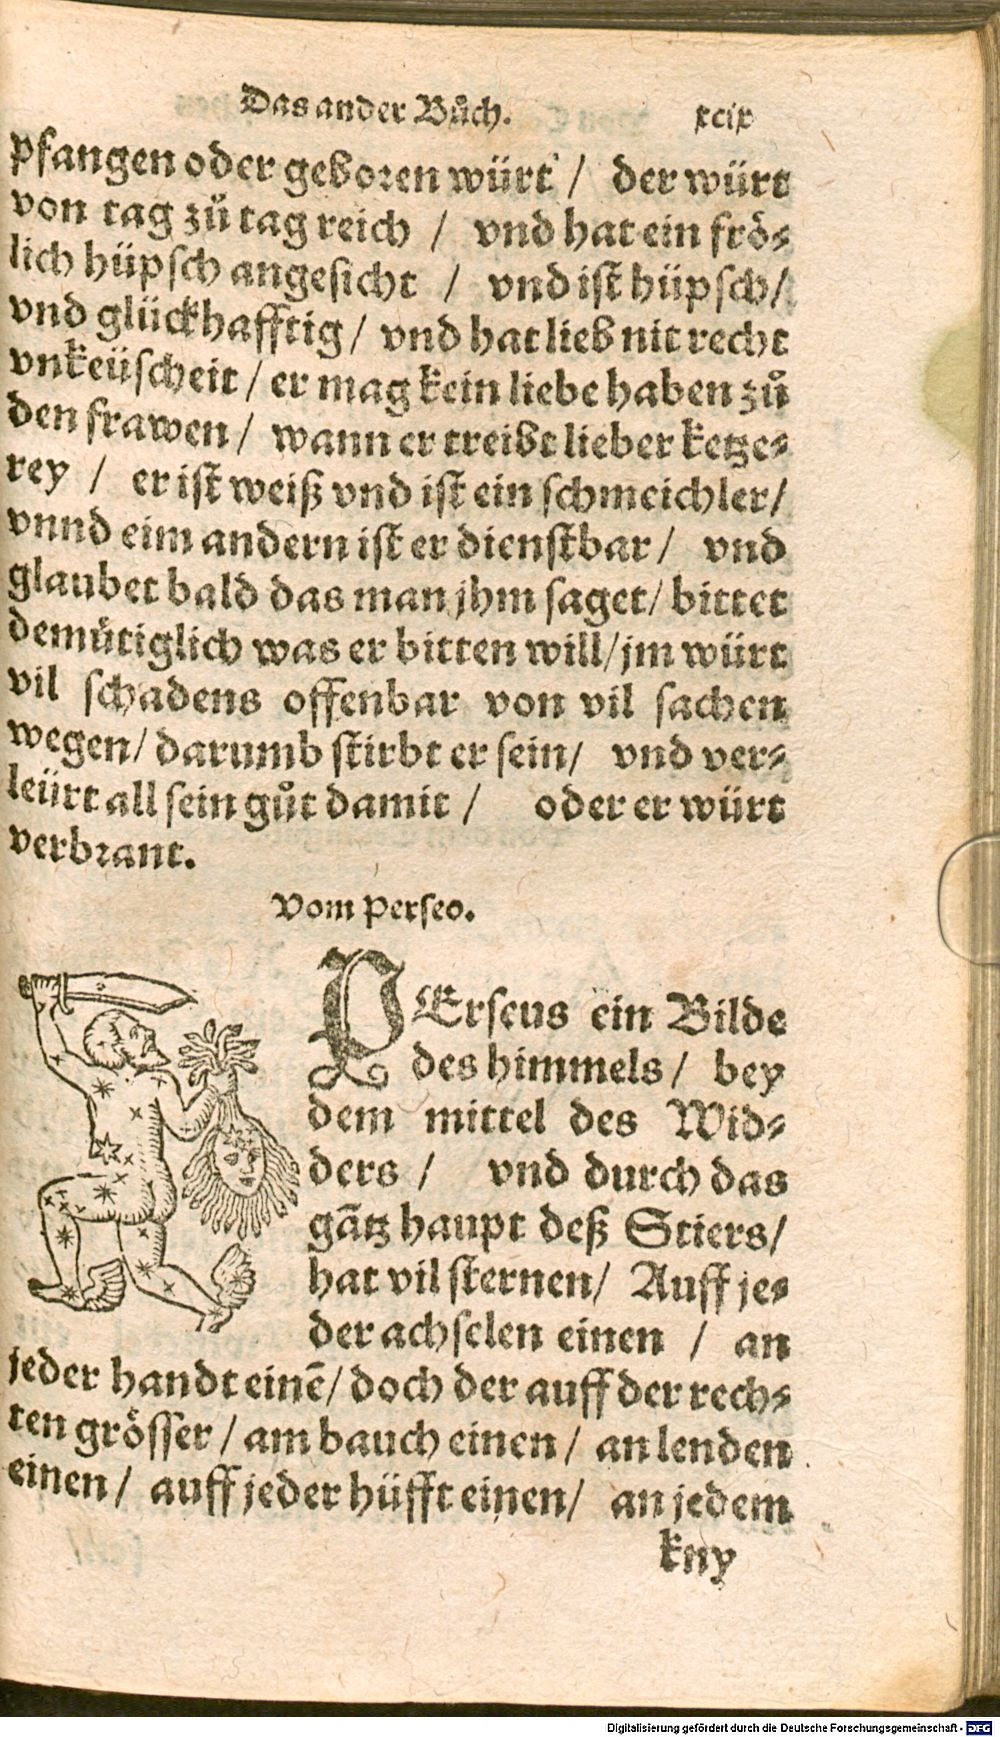 Das ander Bůch. xcix
pfangen oder geboren würt / der würt
von tag zů tag reich / vnd hat ein frö-
lich hüpsch angesicht / vnd ist hüpsch/
vnd glückhafftig / vnd hat lieb nit recht
vnkeüscheit / er mag kein liebe haben zů
den frawen / wann er treibt lieber ketze-
rey / er ist weiß vnd ist ein schmeichler/
vnnd eim andern ist er dienstbar / vnd
glaubet bald das man jhm saget/ bittet
demütiglich was er bitten will/jm würt
vil schadens offenbar von vil sachen
wegen/ darumb stirbt er sein/ vnd ver-
leürt all sein gůt damit / oder er würt
verbrant.
Vom Perseo.
PErseus ein Bilde
des himmels / bey
dem mittel des Wid-
ders / vnd durch das
gātz haupt deß Stiers/
hat vil sternen/ Auff je-
der achselen einen / an
jeder handt einē/ doch der auff der rech-
ten grösser / am bauch einen / an lenden
einen / auff jeder hüfft einen/ an jedem
kny
Digitalisierung gefördert durch die Deutsche Forschungsgemeinschaft - DFG